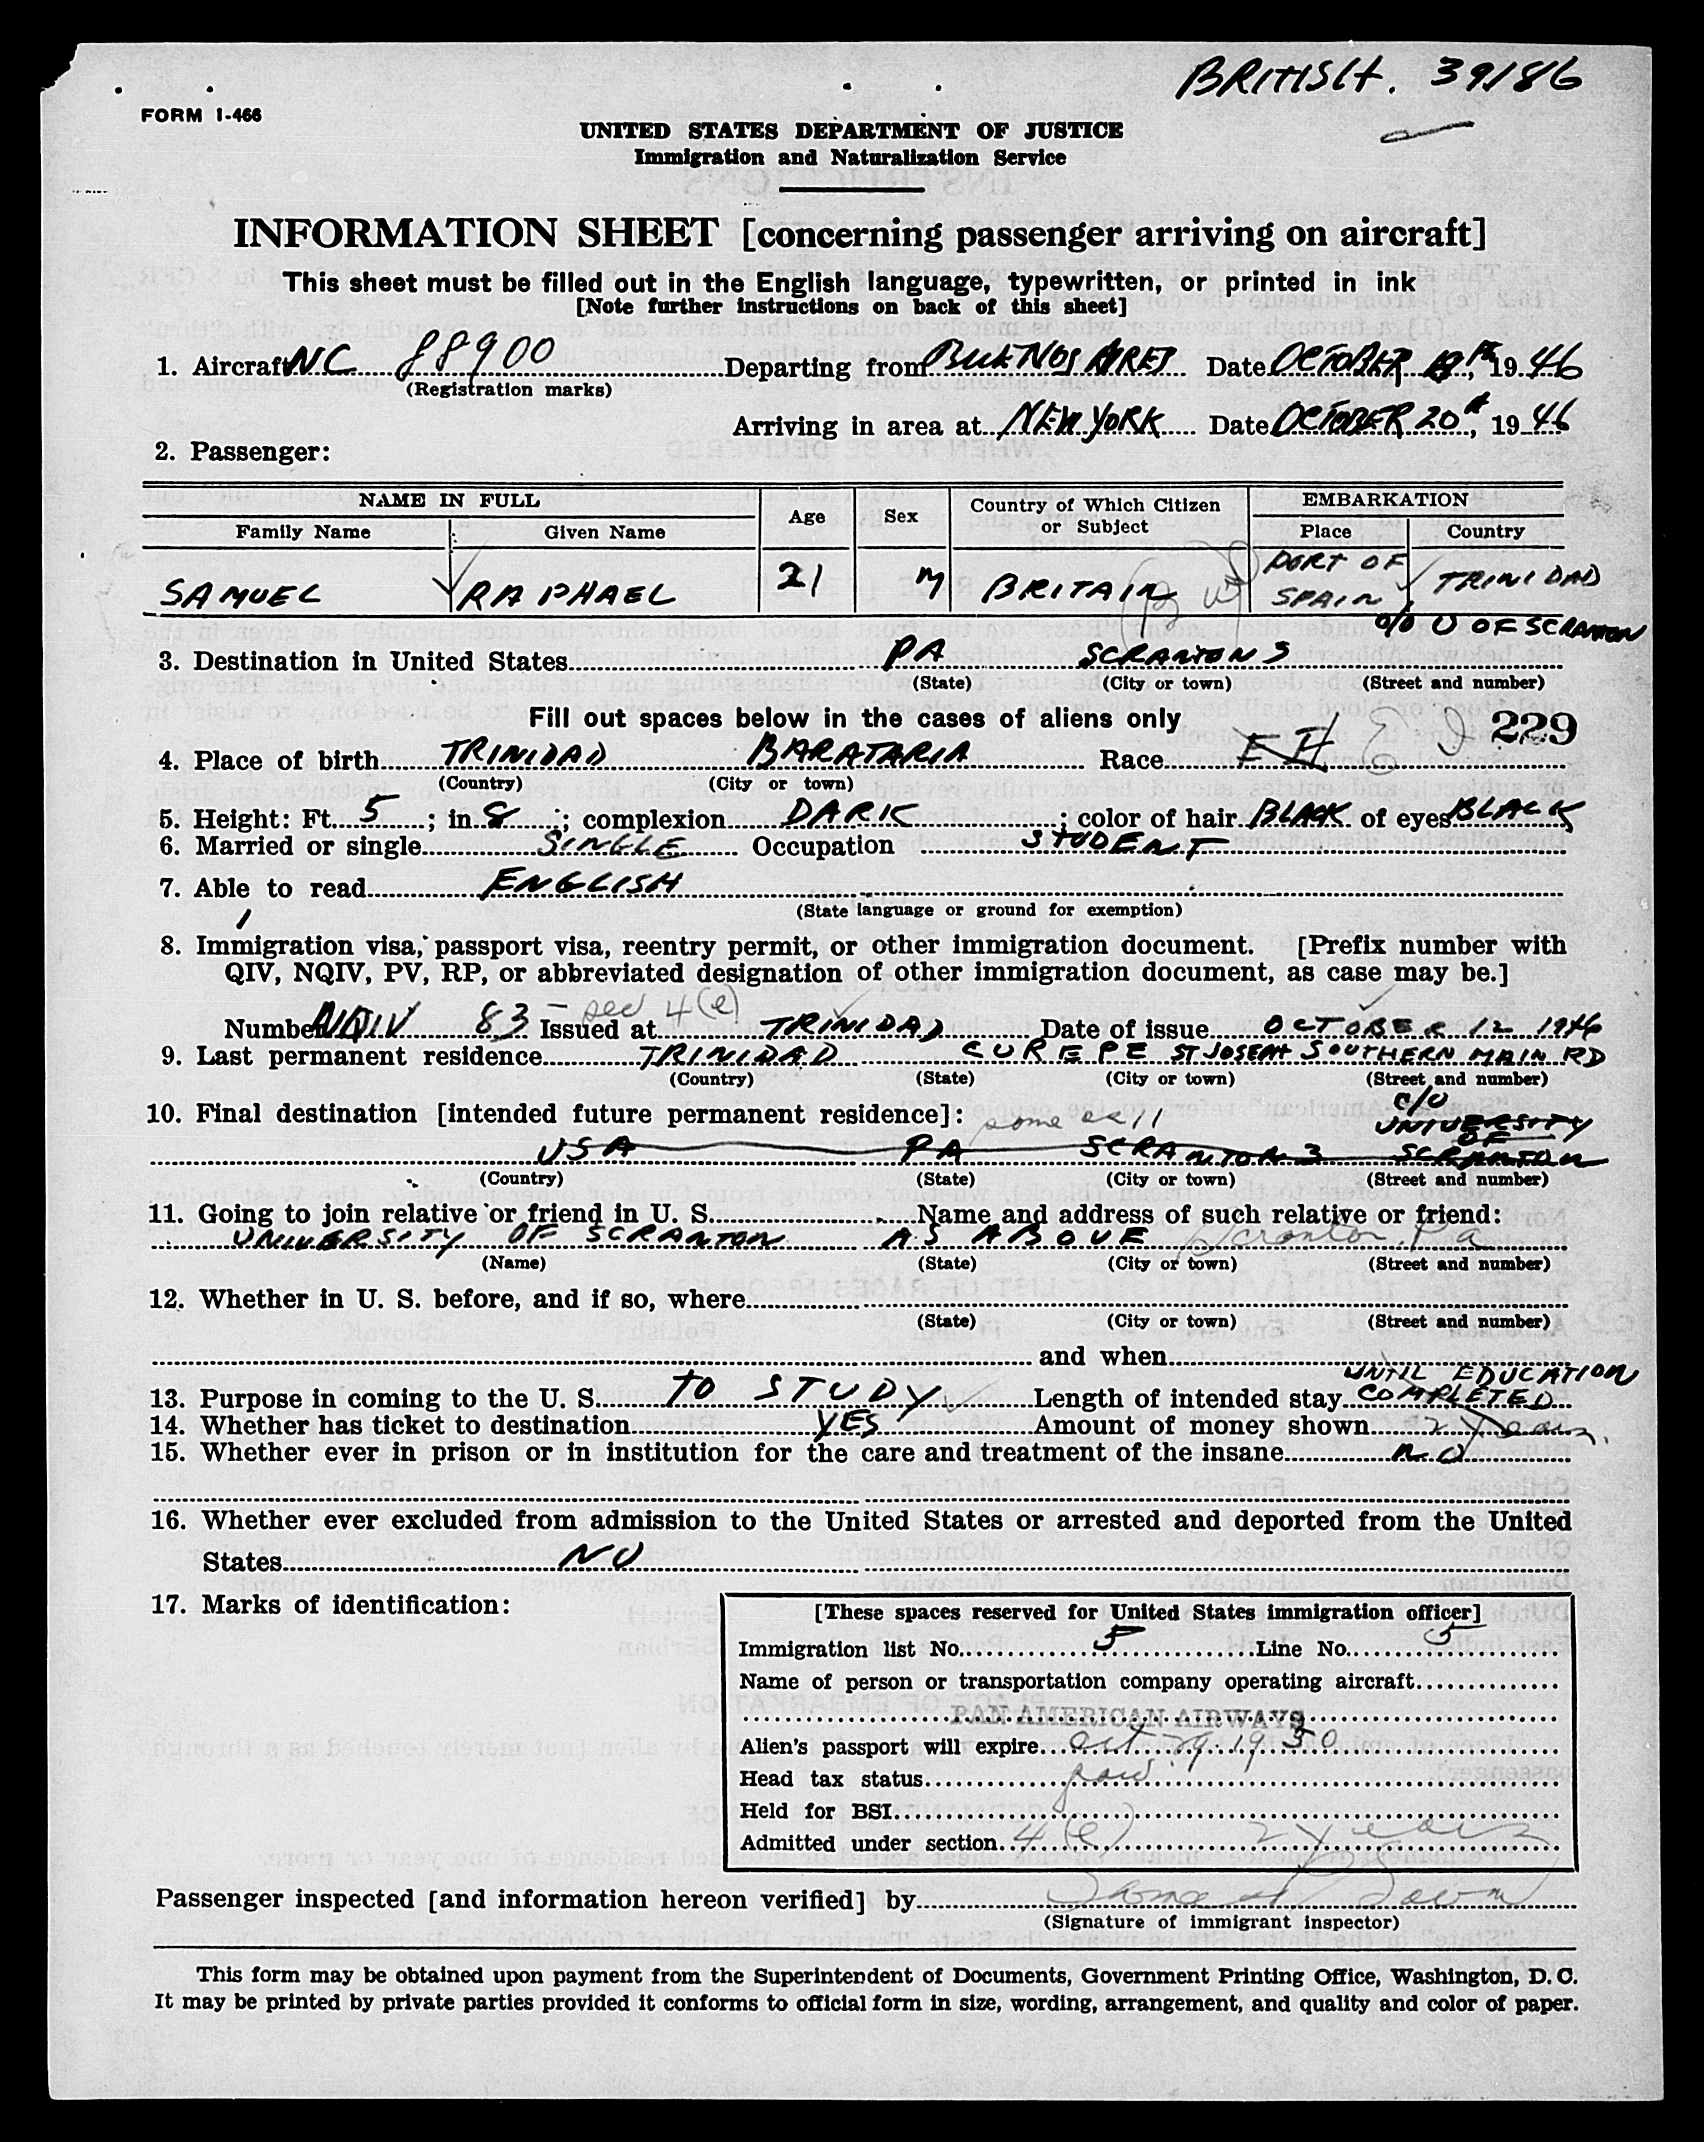 BRITISH. 39186
FORM I-466
UNITED STATES DEPARTMENT OF JUSTICE
Immigration and Naturalization Service
INFORMATION SHEET [concerning passenger arriving on aircraft]
This sheet must be filled out in the English language, typewritten, or printed in ink
[Note further instructions on back of this sheet]
1. Aircraft NC 88900 Departing from BUENOS AIRES Date OCTOBER , 1946
(Registration marks)
Arriving in area at NEW YORK Date OCTOBER 20th, 1946
2. Passenger:
NAME IN FULL Age Sex Country of Which Citizen or Subject EMBARKATION
Family Name Given Name Place Country
SAMUEL RAPHAEL 21 M BRITAIN PORT OF SPAIN TRINIDAD
c/o U OF SCRANTON
3. Destination in United States PA SCRANTON 3
(State) (City or town) (Street and number)
Fill out spaces below in the cases of aliens only 229
4. Place of birth TRINIDAD BARATARIA Race E I
(Country) (City or town)
5. Height: Ft. 5; in. 8; complexion DARK; color of hair BLACK of eyes BLACK
6. Married or single SINGLE Occupation STUDENT
7. Able to read ENGLISH
(State language or ground for exemption)
8. Immigration visa, passport visa, reentry permit, or other immigration document. [Prefix number with
QIV, NQIV, PV, RP, or abbreviated designation of other immigration document, as case may be.]
Number NQIV 83 - sec 4(e) Issued at TRINIDAD Date of issue OCTOBER 12 1946
9. Last permanent residence TRINIDAD CUREPE ST JOSEPH SOUTHERN MAIN RD
(Country) (State) (City or town) (Street and number)
10. Final destination [intended future permanent residence]: same as 11
C/O UNIVERSITY OF
USA PA SCRANTON 3 SCRANTON
(Country) (State) (City or town) (Street and number)
11. Going to join relative or friend in U. S. Name and address of such relative or friend:
UNIVERSITY OF SCRANTON AS ABOVE Scranton, Pa
(Name) (State) (City or town) (Street and number)
12. Whether in U. S. before, and if so, where
(State) (City or town) (Street and number)
and when
13. Purpose in coming to the U. S. TO STUDY Length of intended stay UNTIL EDUCATION COMPLETED
14. Whether has ticket to destination YES Amount of money shown 2 years.
15. Whether ever in prison or in institution for the care and treatment of the insane NO
16. Whether ever excluded from admission to the United States or arrested and deported from the United
States NO
17. Marks of identification:
[These spaces reserved for United States immigration officer]
Immigration list No. 5 Line No. 5
Name of person or transportation company operating aircraft
PAN AMERICAN AIRWAYS
Alien's passport will expire Oct 29 1950
Head tax status paid
Held for BSI
Admitted under section 4(e) 2 years
Passenger inspected [and information hereon verified] by
(Signature of immigrant inspector)
This form may be obtained upon payment from the Superintendent of Documents, Government Printing Office, Washington, D. C.
It may be printed by private parties provided it conforms to official form in size, wording, arrangement, and quality and color of paper.